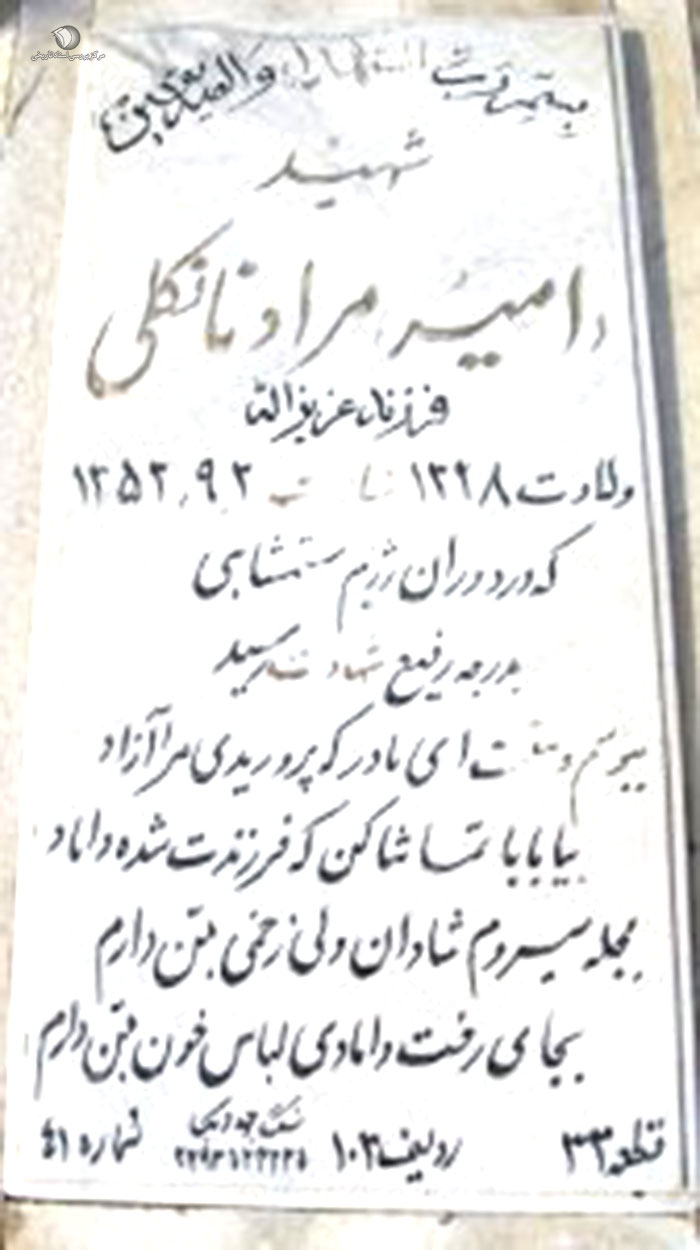 مرکز بررسی اسناد تاریخی
بسم رب الشهداء والصدیقین
شهید
امیر مراد نانکلی
فرزند عزیز الله
ولادت ۱۳۲۸ ۱۳۵۲٫۹٫۲
که در دوران رژیم ستمشاهی
بدرجه رفیع شهادت رسید
ای مادر که پروریدی مرا آزاد
بیا بابا تماشا کن که فرزندت شده داماد
بحجله میروم شادان ولی زخمی بتن دارم
بجای رخت دامادی لباس خون بتن دارم
قطعه ۳۳ ردیف ۱۰۳ شماره ۴۱